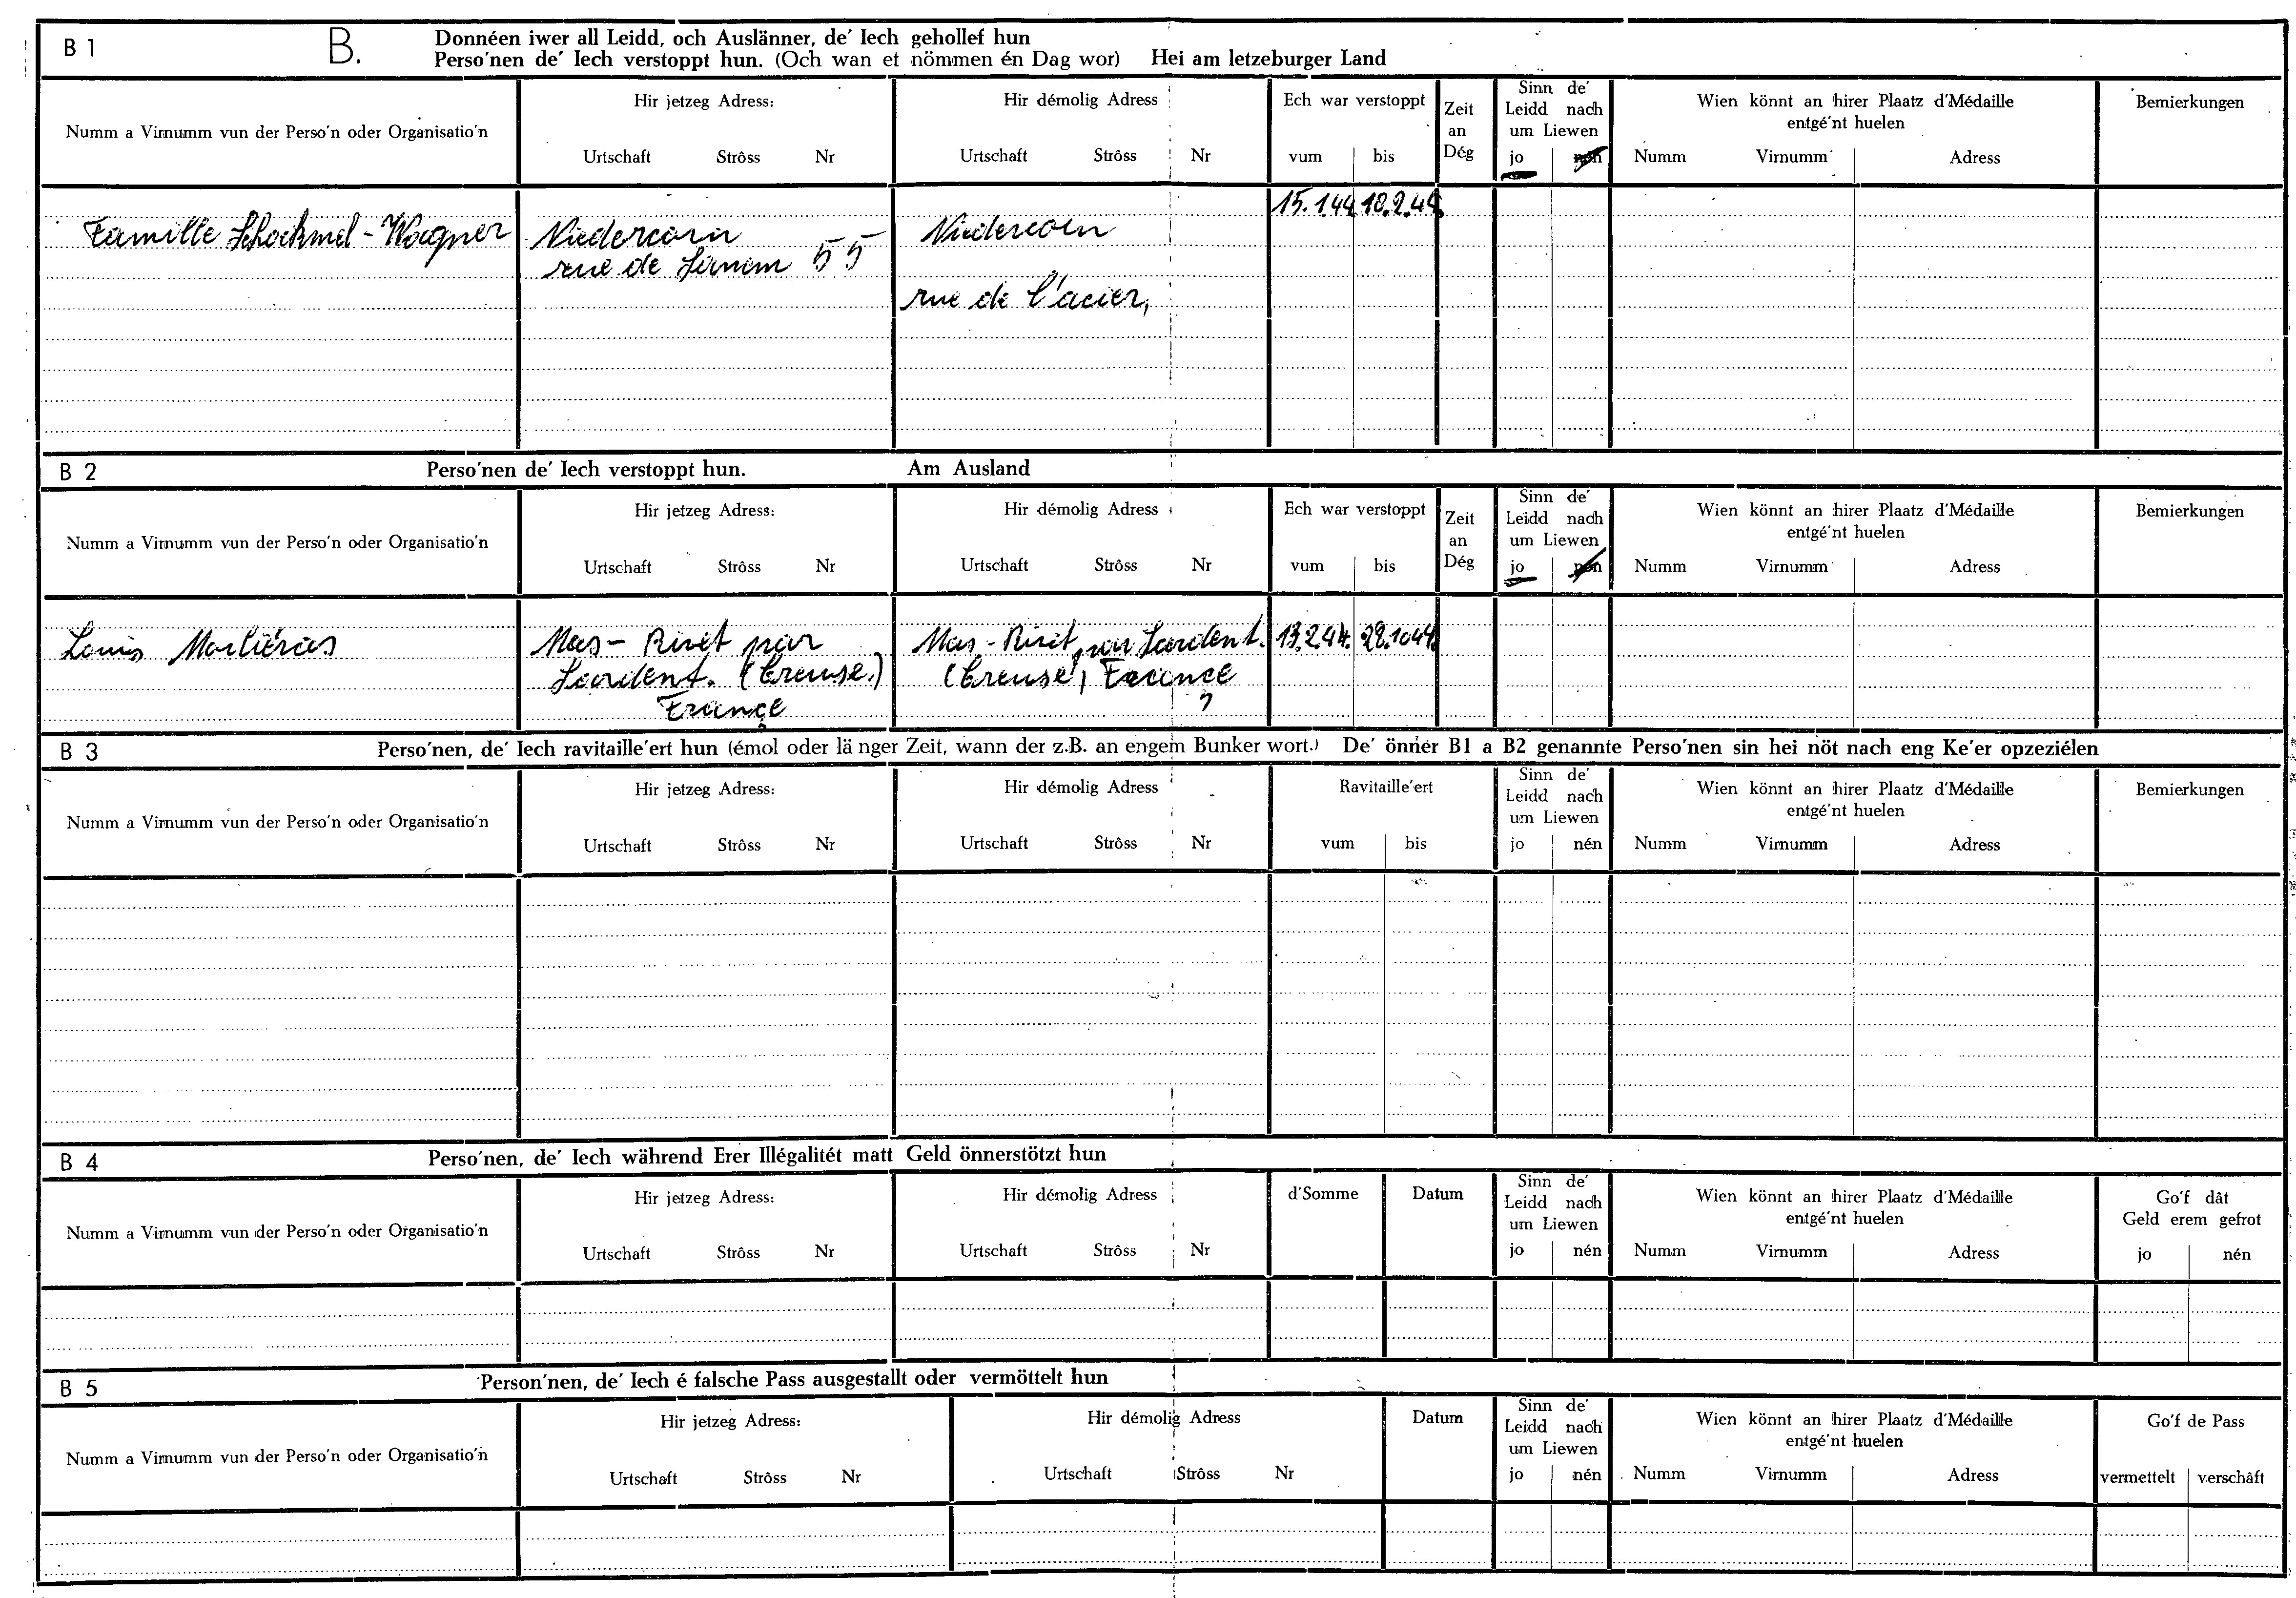 B 1 B. Donnéen iwer all Leidd, och Auslänner, de' Iech gehollef hun
Perso'nen de' Iech verstoppt hun. (Och wan et nömmen én Dag wor) Hei am letzeburger Land
Numm a Virnumm vun der Perso'n oder Organisatio'n
Hir jetzeg Adress:
Urtschaft Strôss Nr
Hir démolig Adress
Urtschaft Strôss Nr
Ech war verstoppt
vum bis
Zeit
an
Dég
Sinn de'
Leidd nach
um Liewen
jo nén
Wien könnt an hirer Plaatz d'Médaille
entgé'nt huelen
Numm Virnumm Adress
Bemierkungen
Famille Schockmel - Wagner
Niedercorn
rue de Sanem 55
Niedercorn
rue de l'acier,
15.1.44 10.2.44
B 2 Perso'nen de' Iech verstoppt hun. Am Ausland
Numm a Virnumm vun der Perso'n oder Organisatio'n
Hir jetzeg Adress:
Urtschaft Strôss Nr
Hir démolig Adress
Urtschaft Strôss Nr
Ech war verstoppt
vum bis
Zeit
an
Dég
Sinn de'
Leidd nach
um Liewen
jo nén
Wien könnt an hirer Plaatz d'Médaille
entgé'nt huelen
Numm Virnumm Adress
Bemierkungen
Louis
Mas - Rivet par
Sardent. (Creuse.)
France
Mas - Rivet par Sardent.
(Creuse) France
13.2.44. 28.10.44.
B 3 Perso'nen, de' Iech ravitaille'ert hun (émol oder länger Zeit, wann der z.B. an engem Bunker wort.) De' önner B1 a B2 genannte Perso'nen sin hei nöt nach eng Ke'er opzeziélen
Numm a Virnumm vun der Perso'n oder Organisatio'n
Hir jetzeg Adress:
Urtschaft Strôss Nr
Hir démolig Adress
Urtschaft Strôss Nr
Ravitaille'ert
vum bis
Sinn de'
Leidd nach
um Liewen
jo nén
Wien könnt an hirer Plaatz d'Médaille
entgé'nt huelen
Numm Virnumm Adress
Bemierkungen
B 4 Perso'nen, de' Iech während Erer Illégalitét matt Geld önnerstötzt hun
Numm a Virnumm vun der Perso'n oder Organisatio'n
Hir jetzeg Adress:
Urtschaft Strôss Nr
Hir démolig Adress
Urtschaft Strôss Nr
d'Somme
Datum
Sinn de'
Leidd nach
um Liewen
jo nén
Wien könnt an hirer Plaatz d'Médaille
entgé'nt huelen
Numm Virnumm Adress
Go'f dât
Geld erem gefrot
jo nén
B 5 Person'nen, de' Iech é falsche Pass ausgestallt oder vermöttelt hun
Numm a Virnumm vun der Perso'n oder Organisatio'n
Hir jetzeg Adress:
Urtschaft Strôss Nr
Hir démolig Adress
Urtschaft Strôss Nr
Datum
Sinn de'
Leidd nach
um Liewen
jo nén
Wien könnt an hirer Plaatz d'Médaille
entgé'nt huelen
Numm Virnumm Adress
Go'f de Pass
vermettelt verschâft